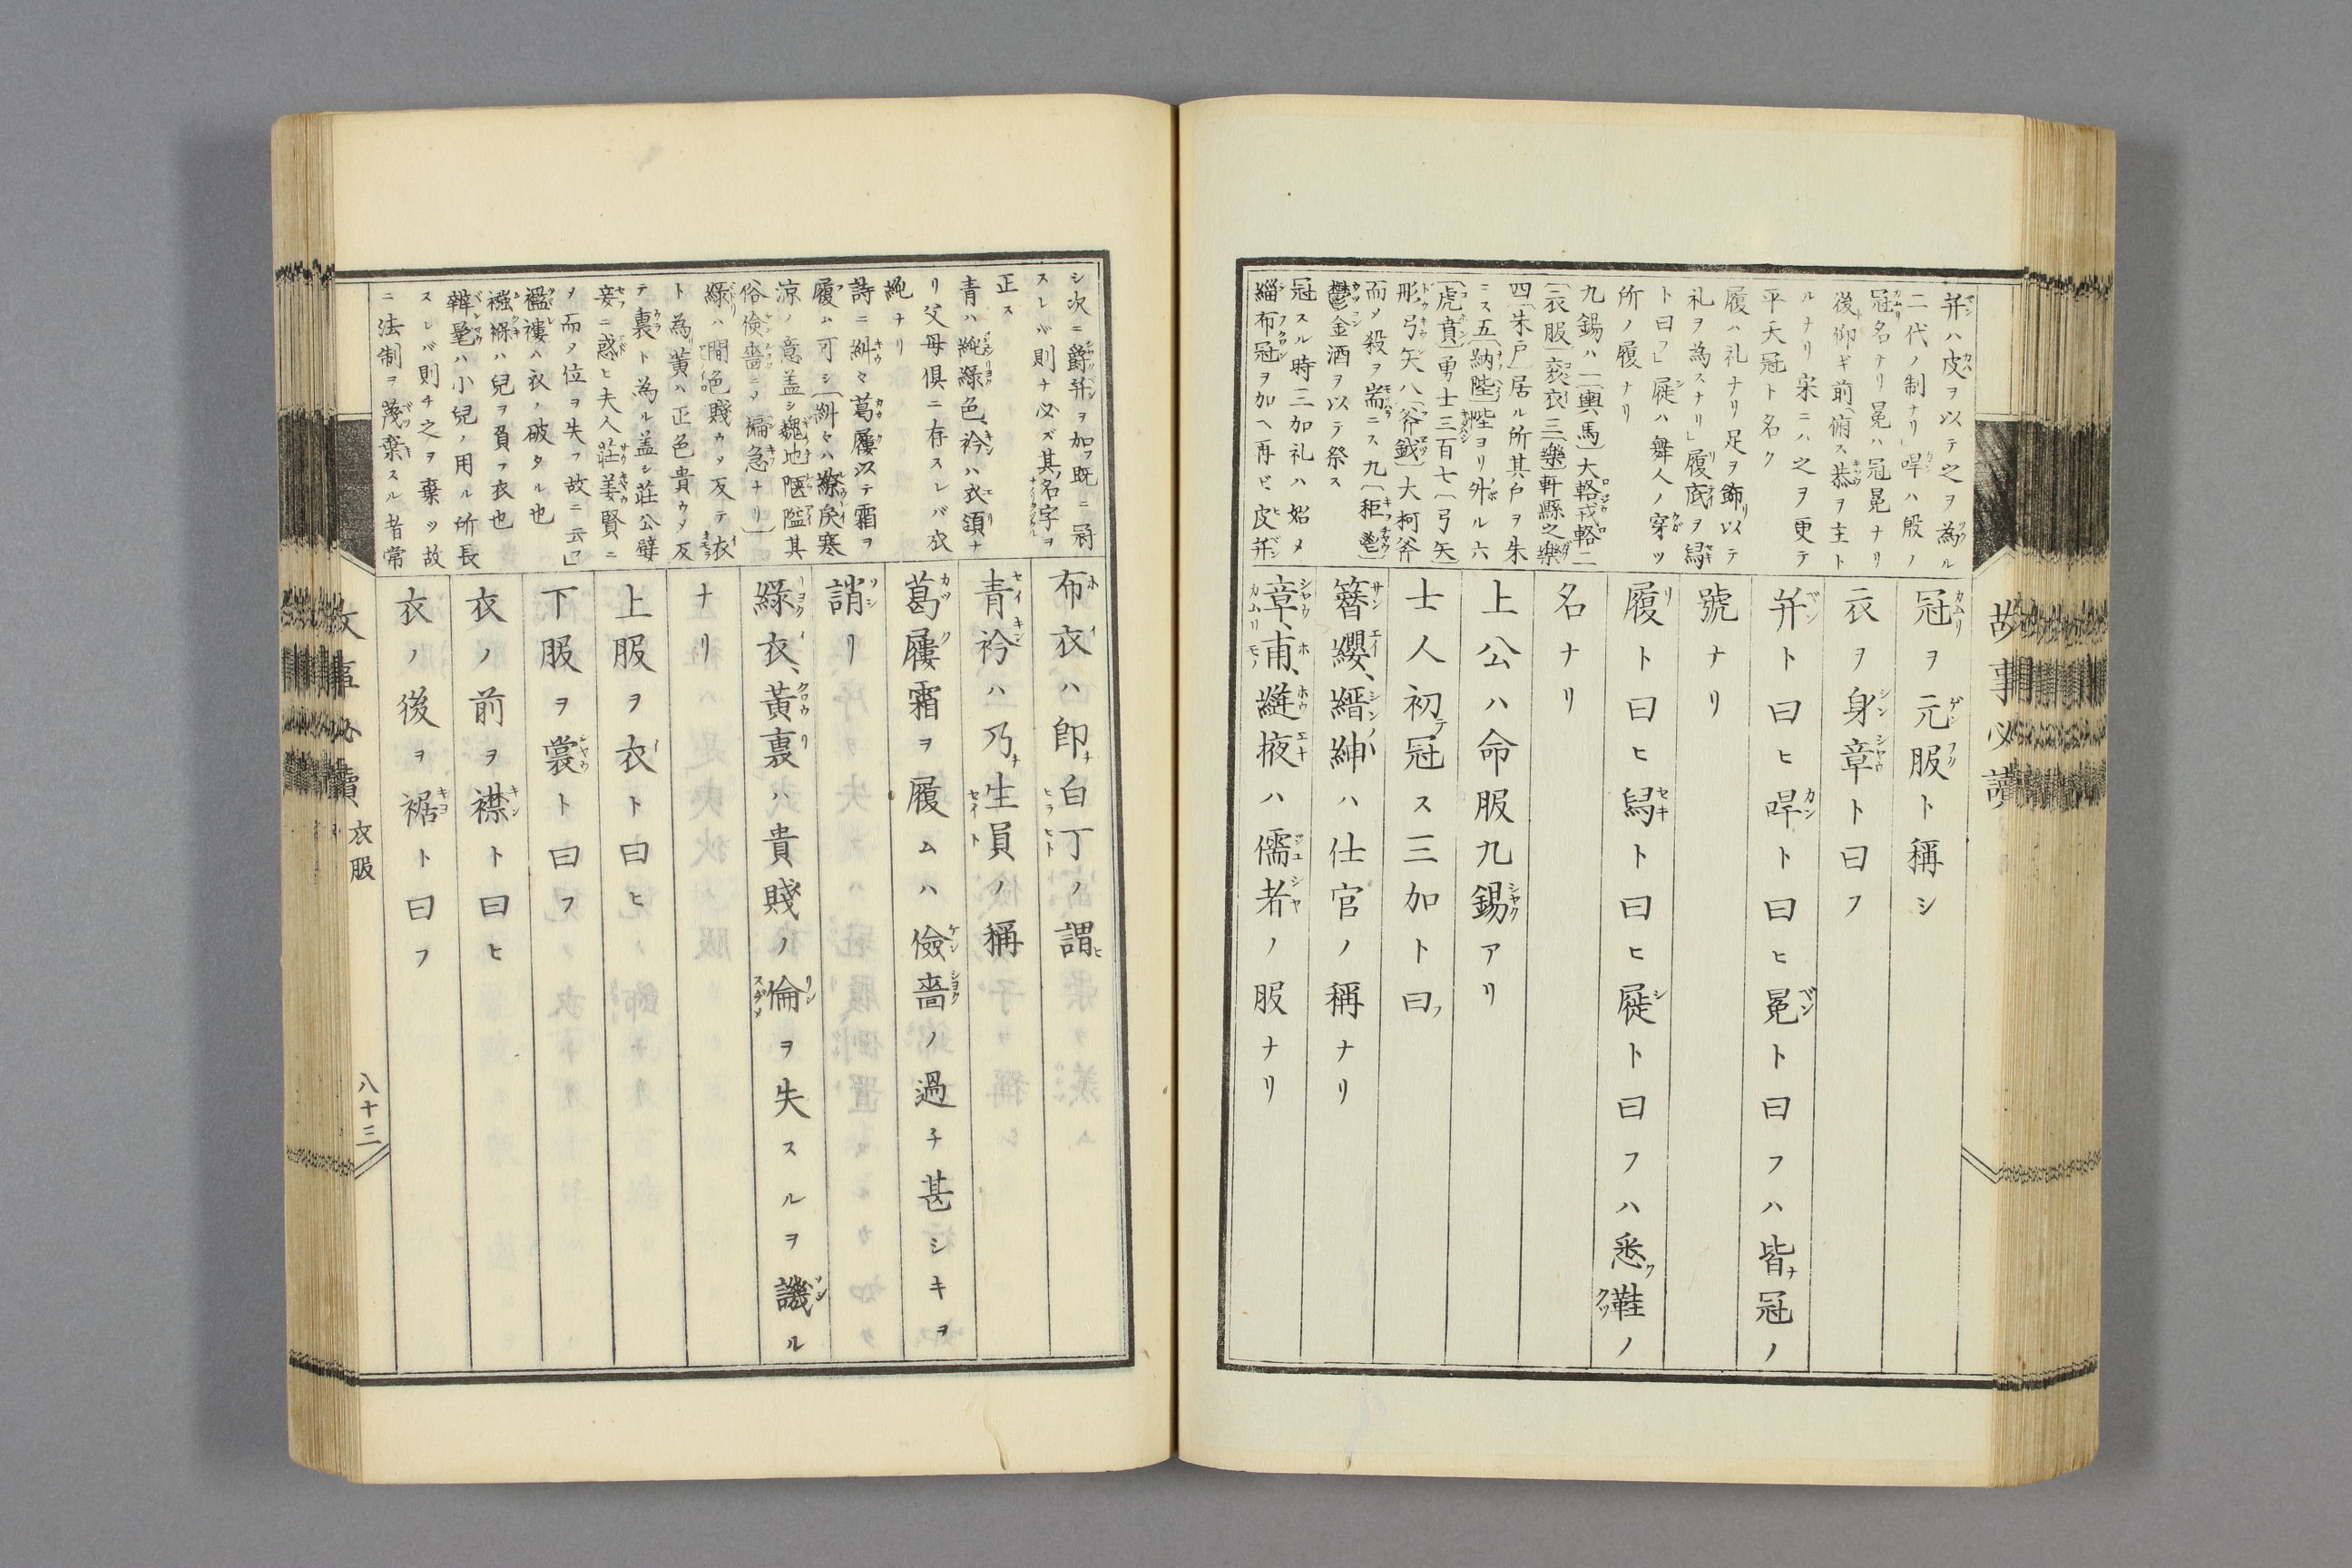 故事必讀
弁ハ皮ヲ以テ之ヲ為ル
二代ノ制ナリ」哻ハ殷ノ
冠名ナリ冕ハ冠冕ナリ
後仰ギ前俯ス恭ヲ主ト
ルナリ宋ニハ之ヲ更テ
平天冠ト名ク
履ハ礼ナリ足ヲ飾リ以テ
礼ヲ為スナリ」履底ヲ舄
ト曰フ」屣ハ舞人ノ穿ツ
所ノ履ナリ
九錫ハ一〔輿馬〕大輅戎輅二
〔衣服〕袞衣三〔樂〕軒縣之樂
四〔朱戸〕居ル所其戸ヲ朱
ニス五〔納陛〕陛ヨリ外ル六
〔虎賁〕勇士三百七〔弓矢〕
彤弓矢八〔斧鉞〕大柯斧
而ノ殺ヲ耑ニス九〔秬鬯〕
鬱金酒ヲ以テ祭ス
冠スル時三加礼ハ始メ
緇布冠ヲ加ヘ再ビ皮弁
冠ヲ元服ト稱シ
衣ヲ身章ト曰フ
弁ト曰ヒ哻ト曰ヒ冕ト曰フハ皆冠ノ
號ナリ
履ト曰ヒ舄ト曰ヒ屣ト曰フハ悉ク鞋ノ
名ナリ
上公ハ命服九錫アリ
士人初テ冠ス三加ト曰フ
簪纓、縉紳ハ仕官ノ稱ナリ
章甫、縫掖ハ儒者ノ服ナリ
シ次ニ爵弁ヲ加フ既ニ冠
スレバ則チ必ズ其名字ヲ
正ス
青ハ純緑色、衿ハ衣領ナ
リ父母俱ニ存スレバ衣
純ナリ
詩ニ糾々葛屨以テ霜ヲ
履ム可シ〔糾々ハ繚戾寒
涼ノ意盖シ魏地陿隘其
俗儉嗇ニノ褊急ナリ〕
緑ハ間色賤ウノ反テ衣
ト為黄ハ正色貴ウノ反
テ裏ト為ル盖シ荘公嬖
妾ニ惑ヒ夫人荘姜賢ニ
ノ而ノ位ヲ失フ故ニ云〕
襤褸ハ衣ノ破タル也
襁褓ハ兒ヲ負フ衣也
辮髦ハ小兒ノ用ル所長
スレバ則チ之ヲ棄ツ故
ニ法制ヲ蔑棄スル者常
布衣ハ即チ白丁ノ謂ヒ
青衿ハ乃チ生員ノ稱
葛屨霜ヲ履ムハ儉嗇ノ過チ甚シキヲ
誚リ
緑衣、黄裏ハ貴賤ノ倫ヲ失スルヲ譏ル
ナリ
上服ヲ衣ト曰ヒ
下服ヲ裳ト曰フ
衣ノ前ヲ襟ト曰ヒ
衣ノ後ヲ裾ト曰フ
故事必讀 衣服 八十三